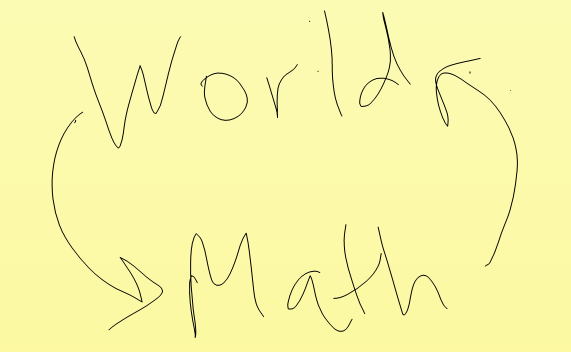 World
Math